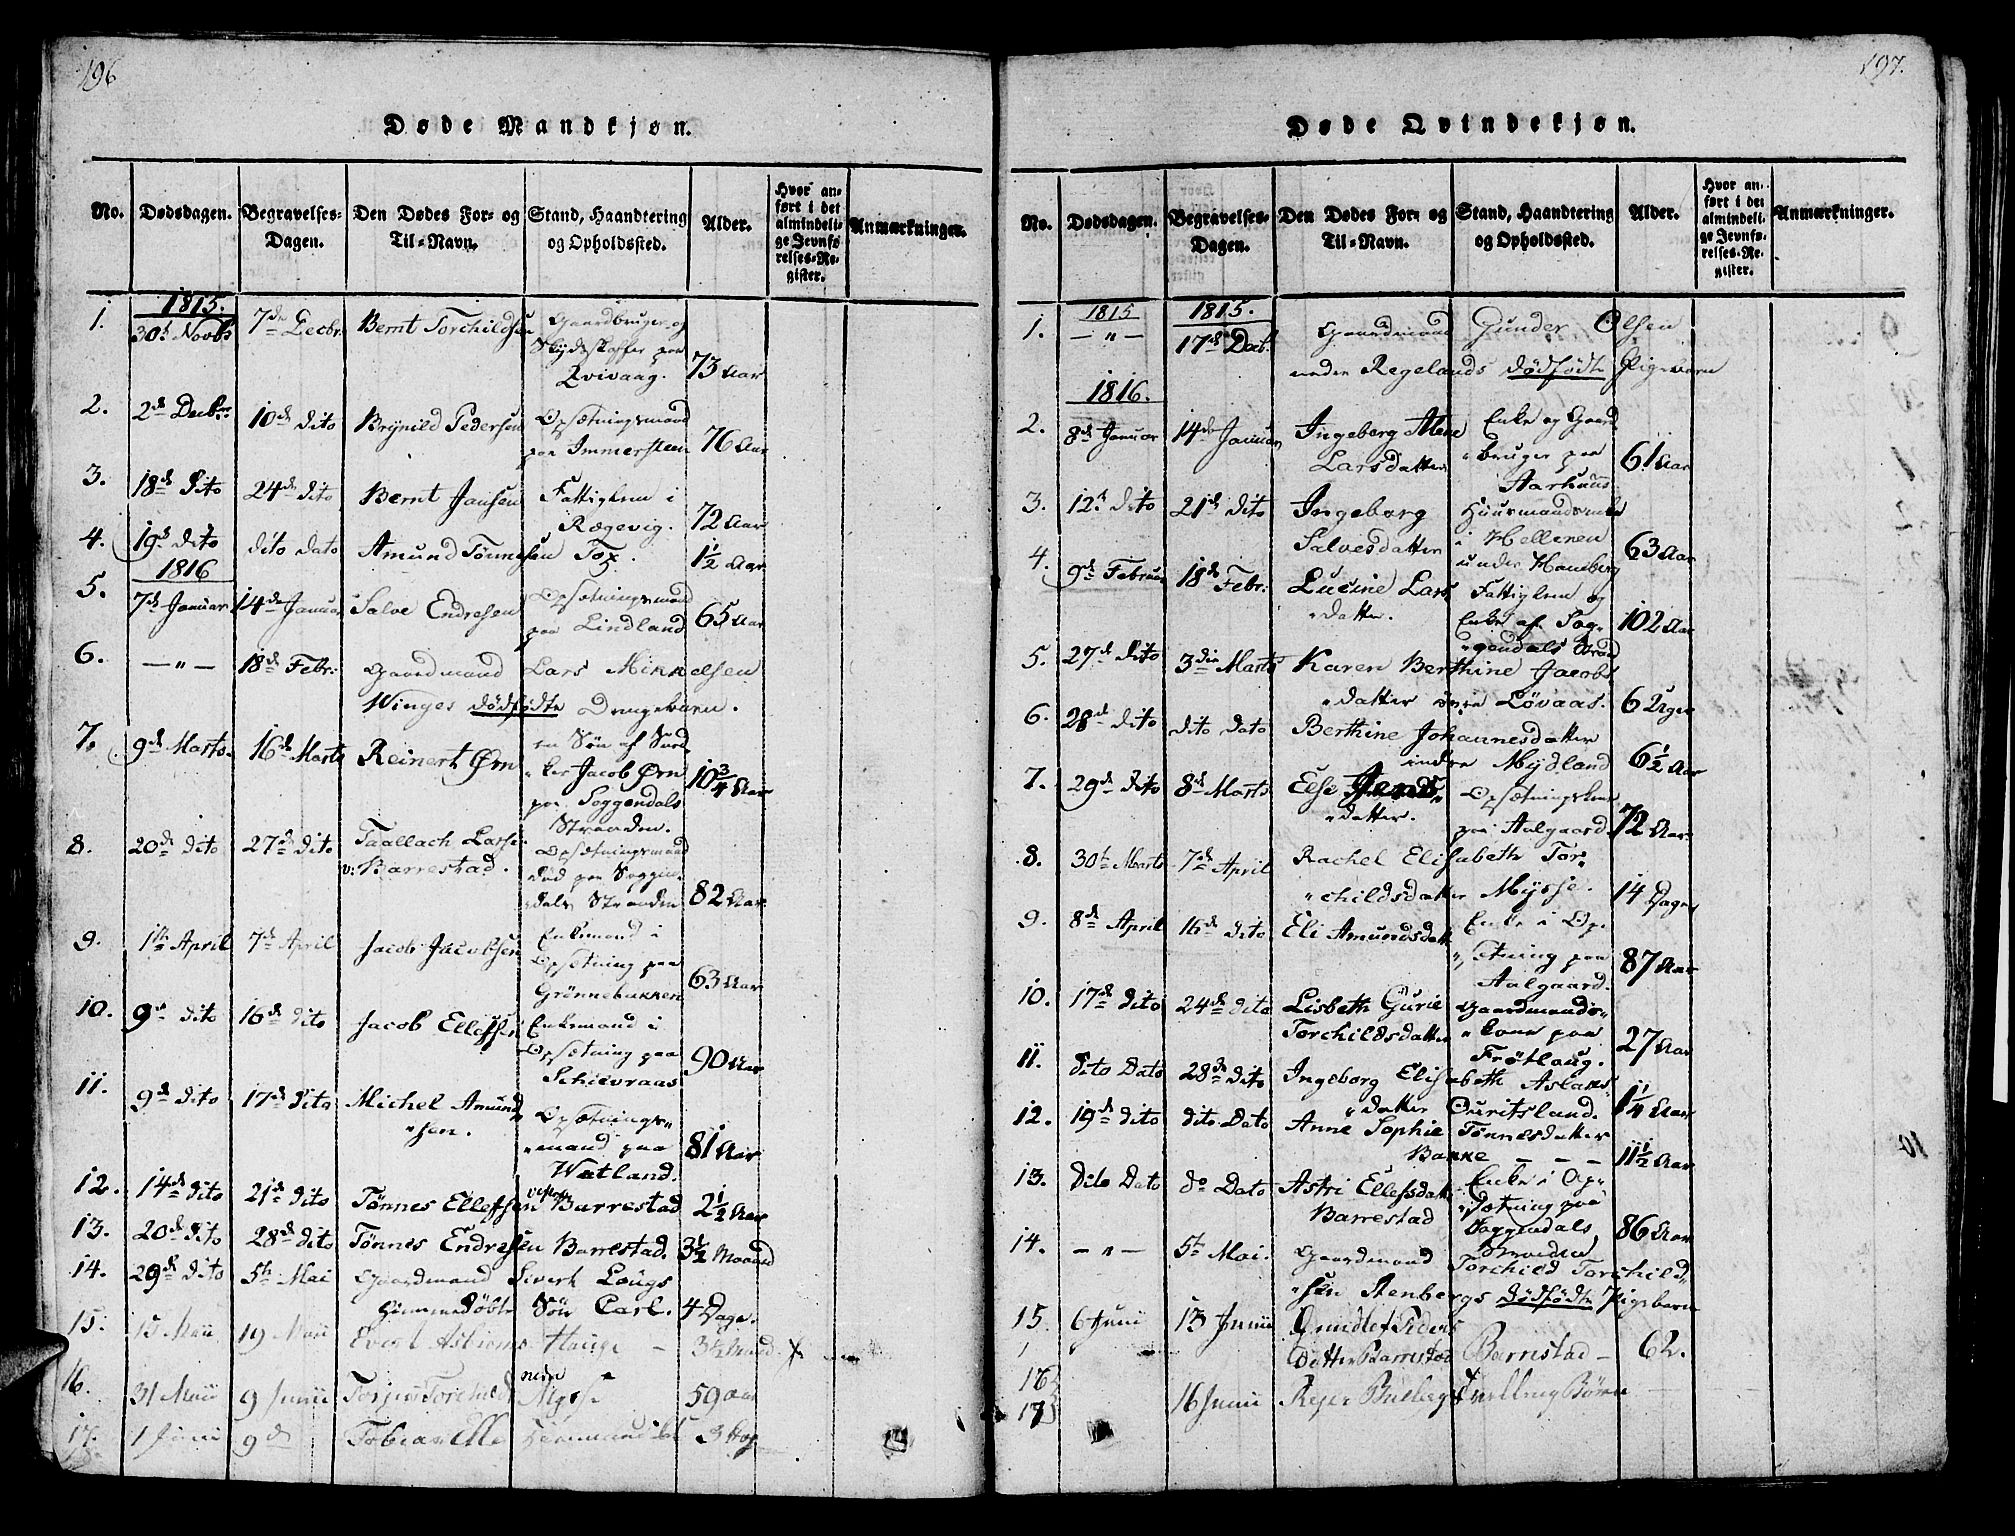 196
Døde Mandkjøn.
No. Dødsdagen. Begravelses-Dagen. Den Dødes For- og Til-Navn. Stand, Haandtering og Opholdssted. Alder. Hvor anført i det almindelige Jevnførelses-Register. Anmærkninger.
1815.
1. 30t Novbr 7de Decbr. Bernt Torchildsen Gaardbruger og
Skydskaffer paa
Qvivaag. 73 Aar
2. 2de Decbr. 10de dito Brynild Pedersen Opsætningsmand
paa Immersteen 76 Aar
3. 18de dito 24de dito Bernt Jansen Fattiglem i
Rægevig. 72 Aar
4. 19de dito dito dato Amund Tönnesen Tox. 1½ Aar
1816
5. 7de Januar 14de Januar Salve Endresen Opsætningsmand
paa Lindland 65 Aar
6. — " — 18de Febr: Gaardmand Lars Mikkelsen
Winges dödfödte Drengebarn.
7. 9de Marts. 16de Marts Reinert Ørn en Sön af
Jacob Ørn 10¾ Aar
paa Soggendals
Stranden.
8. 20de dito 27de dito Taallach Larsen
v: Barrestad. Opsætningsmand
död paa Soggen-
dals Stranden 82 Aar
9. 1te April 7de April Jacob Jacobsen Enkemand i
Opsætning paa
Grönnebakken 63 Aar
10. 9de dito 16de dito Jacob Ellefsen Enkemand i
Opsætning paa
Schievraas 90 Aar
11. 9de dito 17de dito Michel Amund-
"sen. Opsætnings-
"mand paa
Watland. 81 Aar
12. 14de dito 21de dito Tönnes Ellefsen vestre Barrestad 2½ Aar
13. 20de dito 28de dito Tönnes Endresen Barrestad. 3½ Maaned
14. 29de dito 5te Mai Gaardmand Sivert Lougs
hjemmedöbte Sön Carl. 4 Dage.
15. 15 Maii 19 Maii Evert Hauge — 3½
16. 31 Maii 9 Junii Torchilds nedre Mysse 59 Aar
17. 1 Junii 9 d Tobias
197.
Døde Qvindekjøn.
No. Dødsdagen. Begravelses-Dagen. Den Dødes For- og Til-Navn. Stand, Haandtering og Opholdssted. Alder. Hvor anført i det almindelige Jevnførelses-Register. Anmærkninger.
1815 1815.
1. — " — 17de Decb. Gaardmand Gunder Olsen
nedre Regelands dödfödte Pigebarn
1816.
2. 8de Januar 14de Januar Ingeborg Alene
Larsdatter Enke og Gaard
"bruger paa
Aarhuus. 61 Aar
3. 12te dito 21de dito Ingeborg
Salvesdatter Huusmandsenke
i Helleren
under Haneberg 63 Aar
4. 9de Februar 18de Febr: Lucine Lars,
"datter. Fattiglem og
Enke af Sog-
"gendals Strand 102 Aar
5. 27de dito 3die Marts Karen Berthine Jacobs
"datter övre Lövaas. 6 Uger
6. 28de dito dito dato Berthine Johannesdatter
indre Mydland 6½ Aar
7. 29de dito 8de Marts Else Jens,
"datter. Opsætningslem
paa Aalgaard. 72 Aar
8. 30te Marts 7de April Rachel Elisabeth Tor-
"childsdatter Mysse. 14 Dage
9. 8de April 16de dito Eli Amundsdatt Enke i Op-
"sætning paa
Aalgaard. 87 Aar
10. 17de dito 24de dito Lisbeth Gurie
Torchildsdatter Gaardmands-
"kone paa
Frötlaug. 27 Aar
11. dito dato 28de dito Ingeborg Elisabeth Aslaks-
"datter Ouritsland. 1¼ Aar
12. 19de dito dito dato Anne Sophie Tönnesdatter
Bakke — — — 11½ Aar
13. dito dato do dato Astri Ellefsdatt
Barrestad Enke i Op-
"sætning paa
Soggendals
Stranden 86 Aar
14. — " — 5te Mai. Gaardmand Torchild Torchild-
"sen Stenbergs dödfödte Pigebarn
15 6 Junii 13 Junii Peders
datter Barrestad Barrestad — 62.
16
17 16 Junii Tvilling Börn